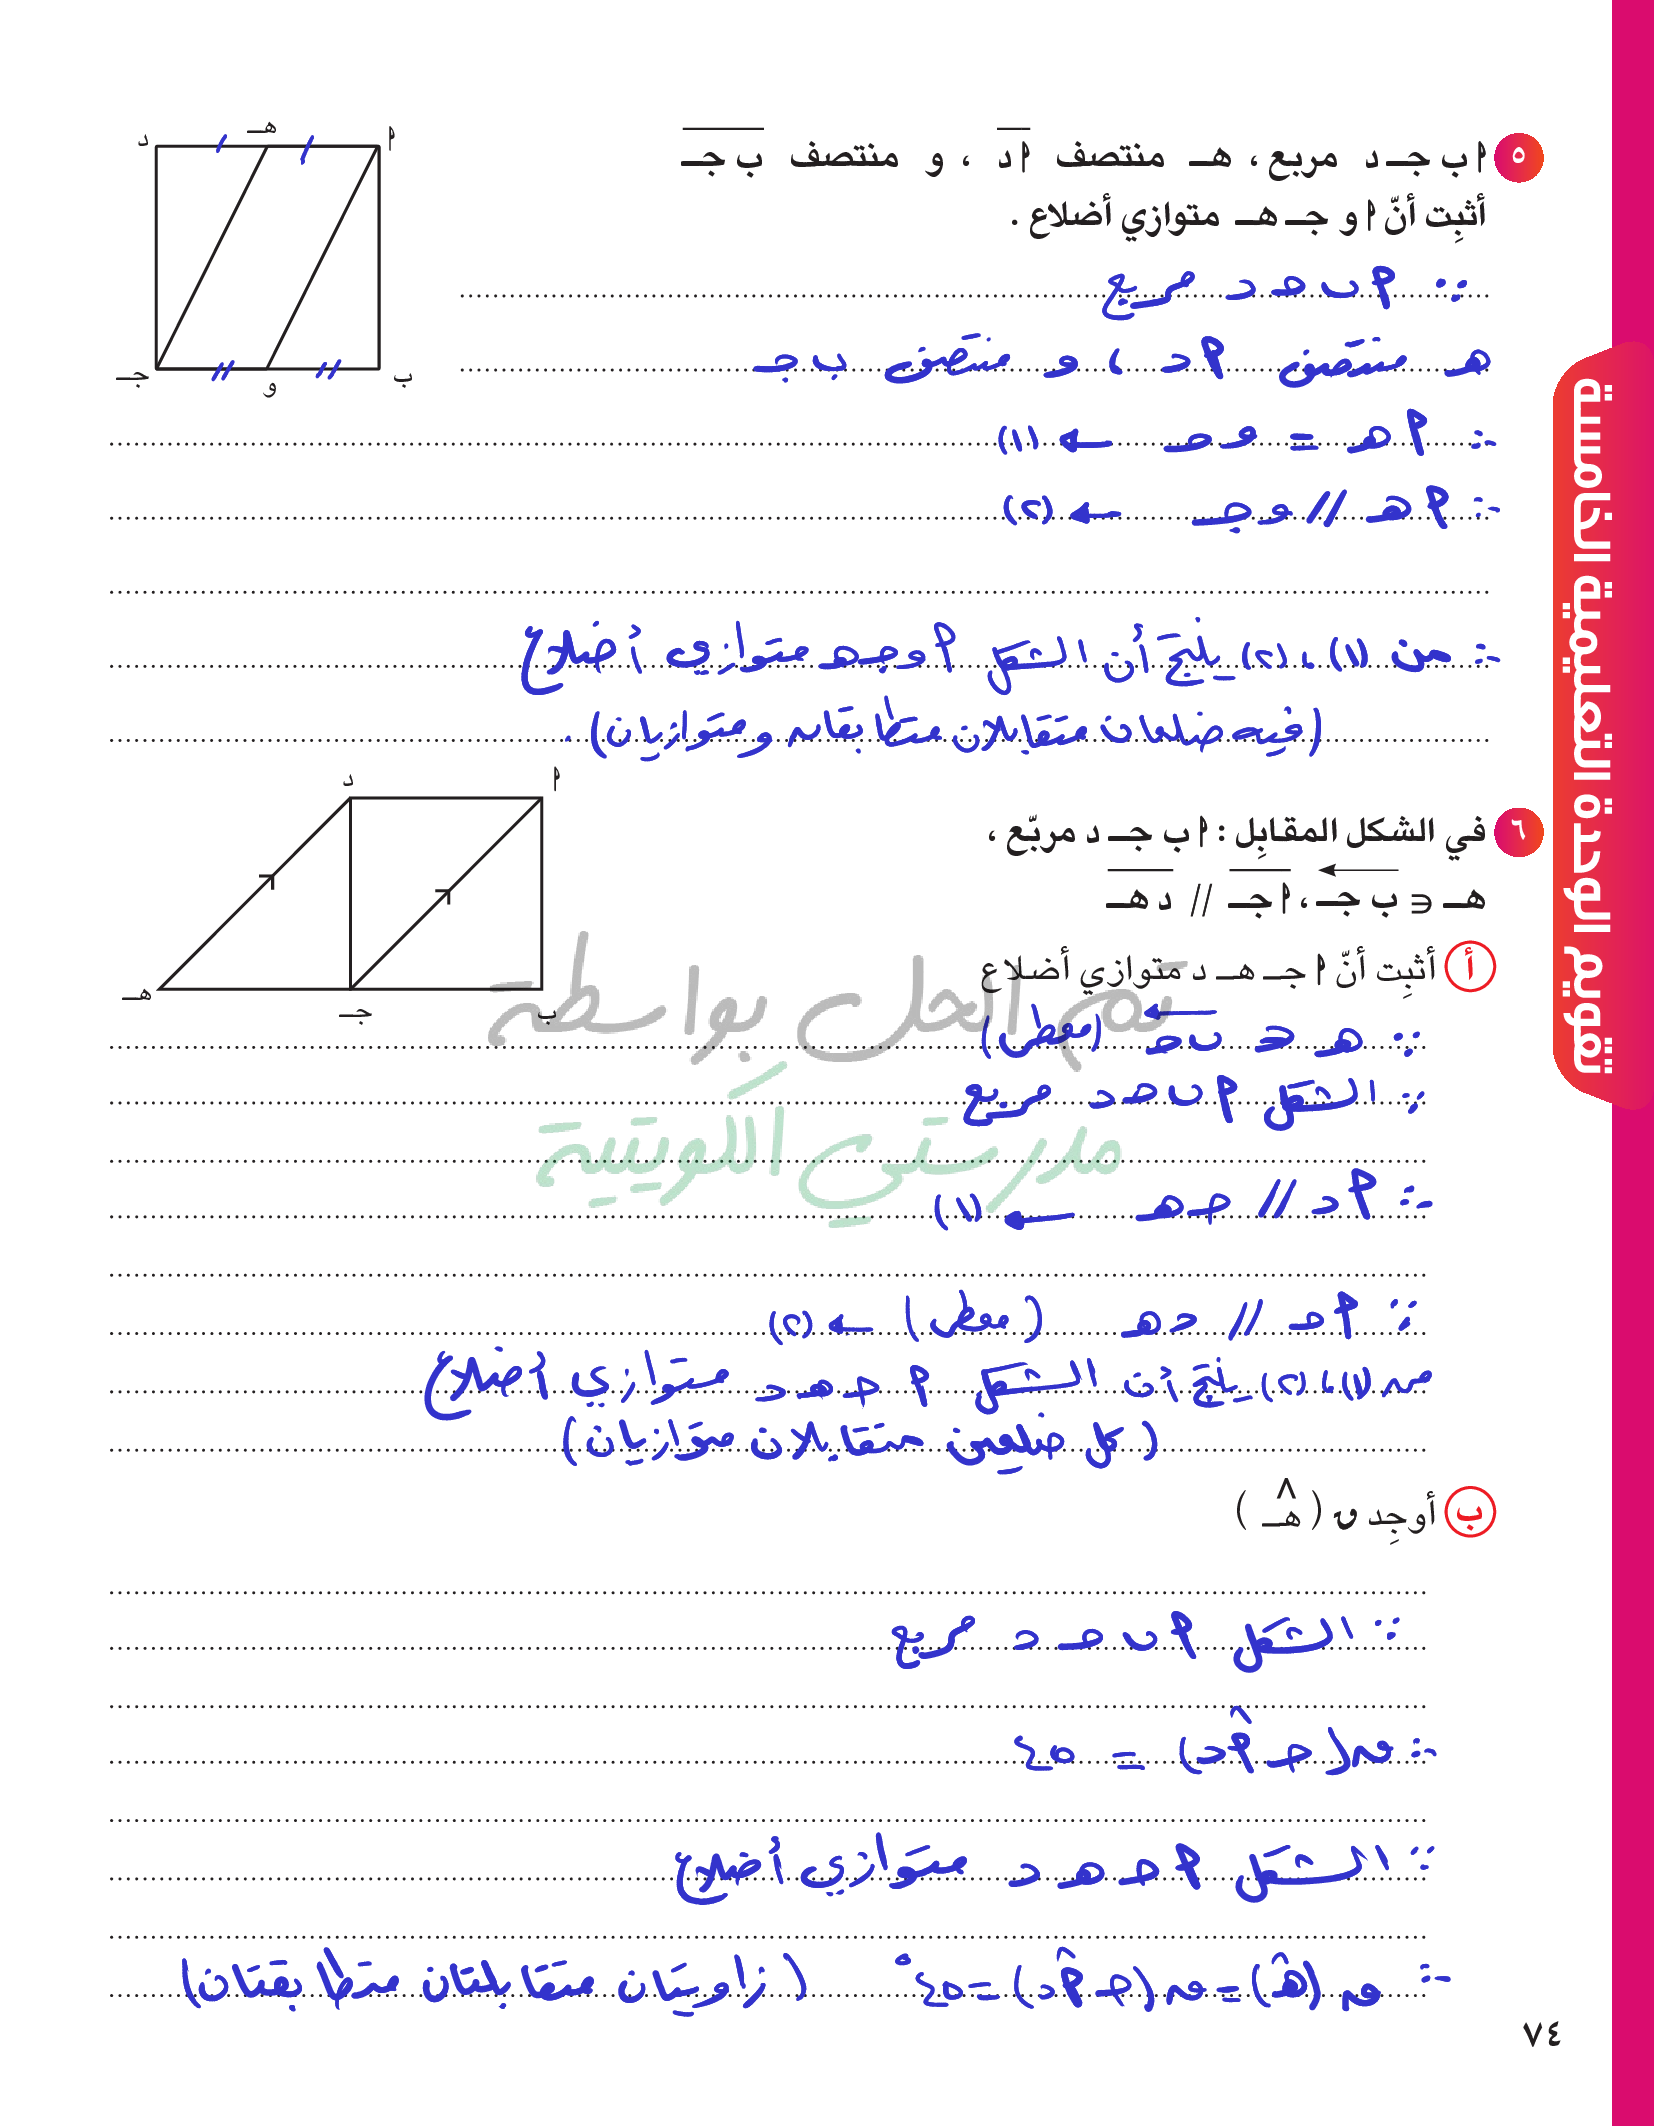 ٥ أ ب جـ د مربع ، هـ منتصف أ د ، و منتصف ب جـ
أثبِت أنّ أ و جـ هـ متوازي أضلاع .
د هـ أ
جـ و ب
∵ أ ب حـ د مربع
هـ منتصف أ د ، و منتصف ب جـ
∴ أ هـ = و حـ ← (١)
∴ أ هـ // و جـ ← (٢)
∴ من (١) ، (٢) ينتج أن الشكل أ و جـ هـ متوازي أضلاع
(فيه ضلعان متقابلان متطابقان ومتوازيان) .
٦ في الشكل المقابِل : أ ب جـ د مربّع ،
هـ ∈ ب جـ ، أ جـ // د هـ
د أ
هـ جـ ب
أ أثبِت أنّ أ جـ هـ د متوازي أضلاع
تم الحل بواسطة
مدرستي الكويتية
∵ هـ ∈ ب حـ (معطى)
∵ الشكل أ ب حـ د مربع
∴ أ د // حـ هـ ← (١)
∵ أ حـ // د هـ (معطى) ← (٢)
من (١) ، (٢) ينتج أن الشكل أ حـ هـ د متوازي أضلاع
(كل ضلعين متقابلان متوازيان)
ب أوجِد ق ( هـ )
∵ الشكل أ ب حـ د مربع
∴ ق (حـ أ د) = ٤٥
∵ الشكل أ حـ هـ د متوازي أضلاع
∴ ق (هـ) = ق (حـ أ د) = ٤٥° (زاويتان متقابلتان متطابقتان)
تقويم الوحدة التعليمية الخامسة
٧٤